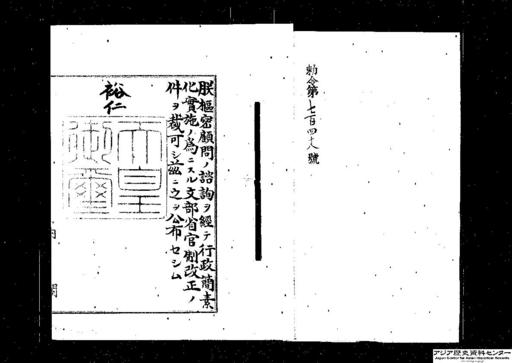 勅令第七百四十八號
朕樞密顧問ノ諮詢ヲ經テ行政簡素
化實施ノ爲ニスル文部省官制改正ノ
件ヲ裁可シ茲ニ之ヲ公布セシム
裕仁
天皇
御璽
内閣
アジア歴史資料センター
Japan Center for Asian Historical Records